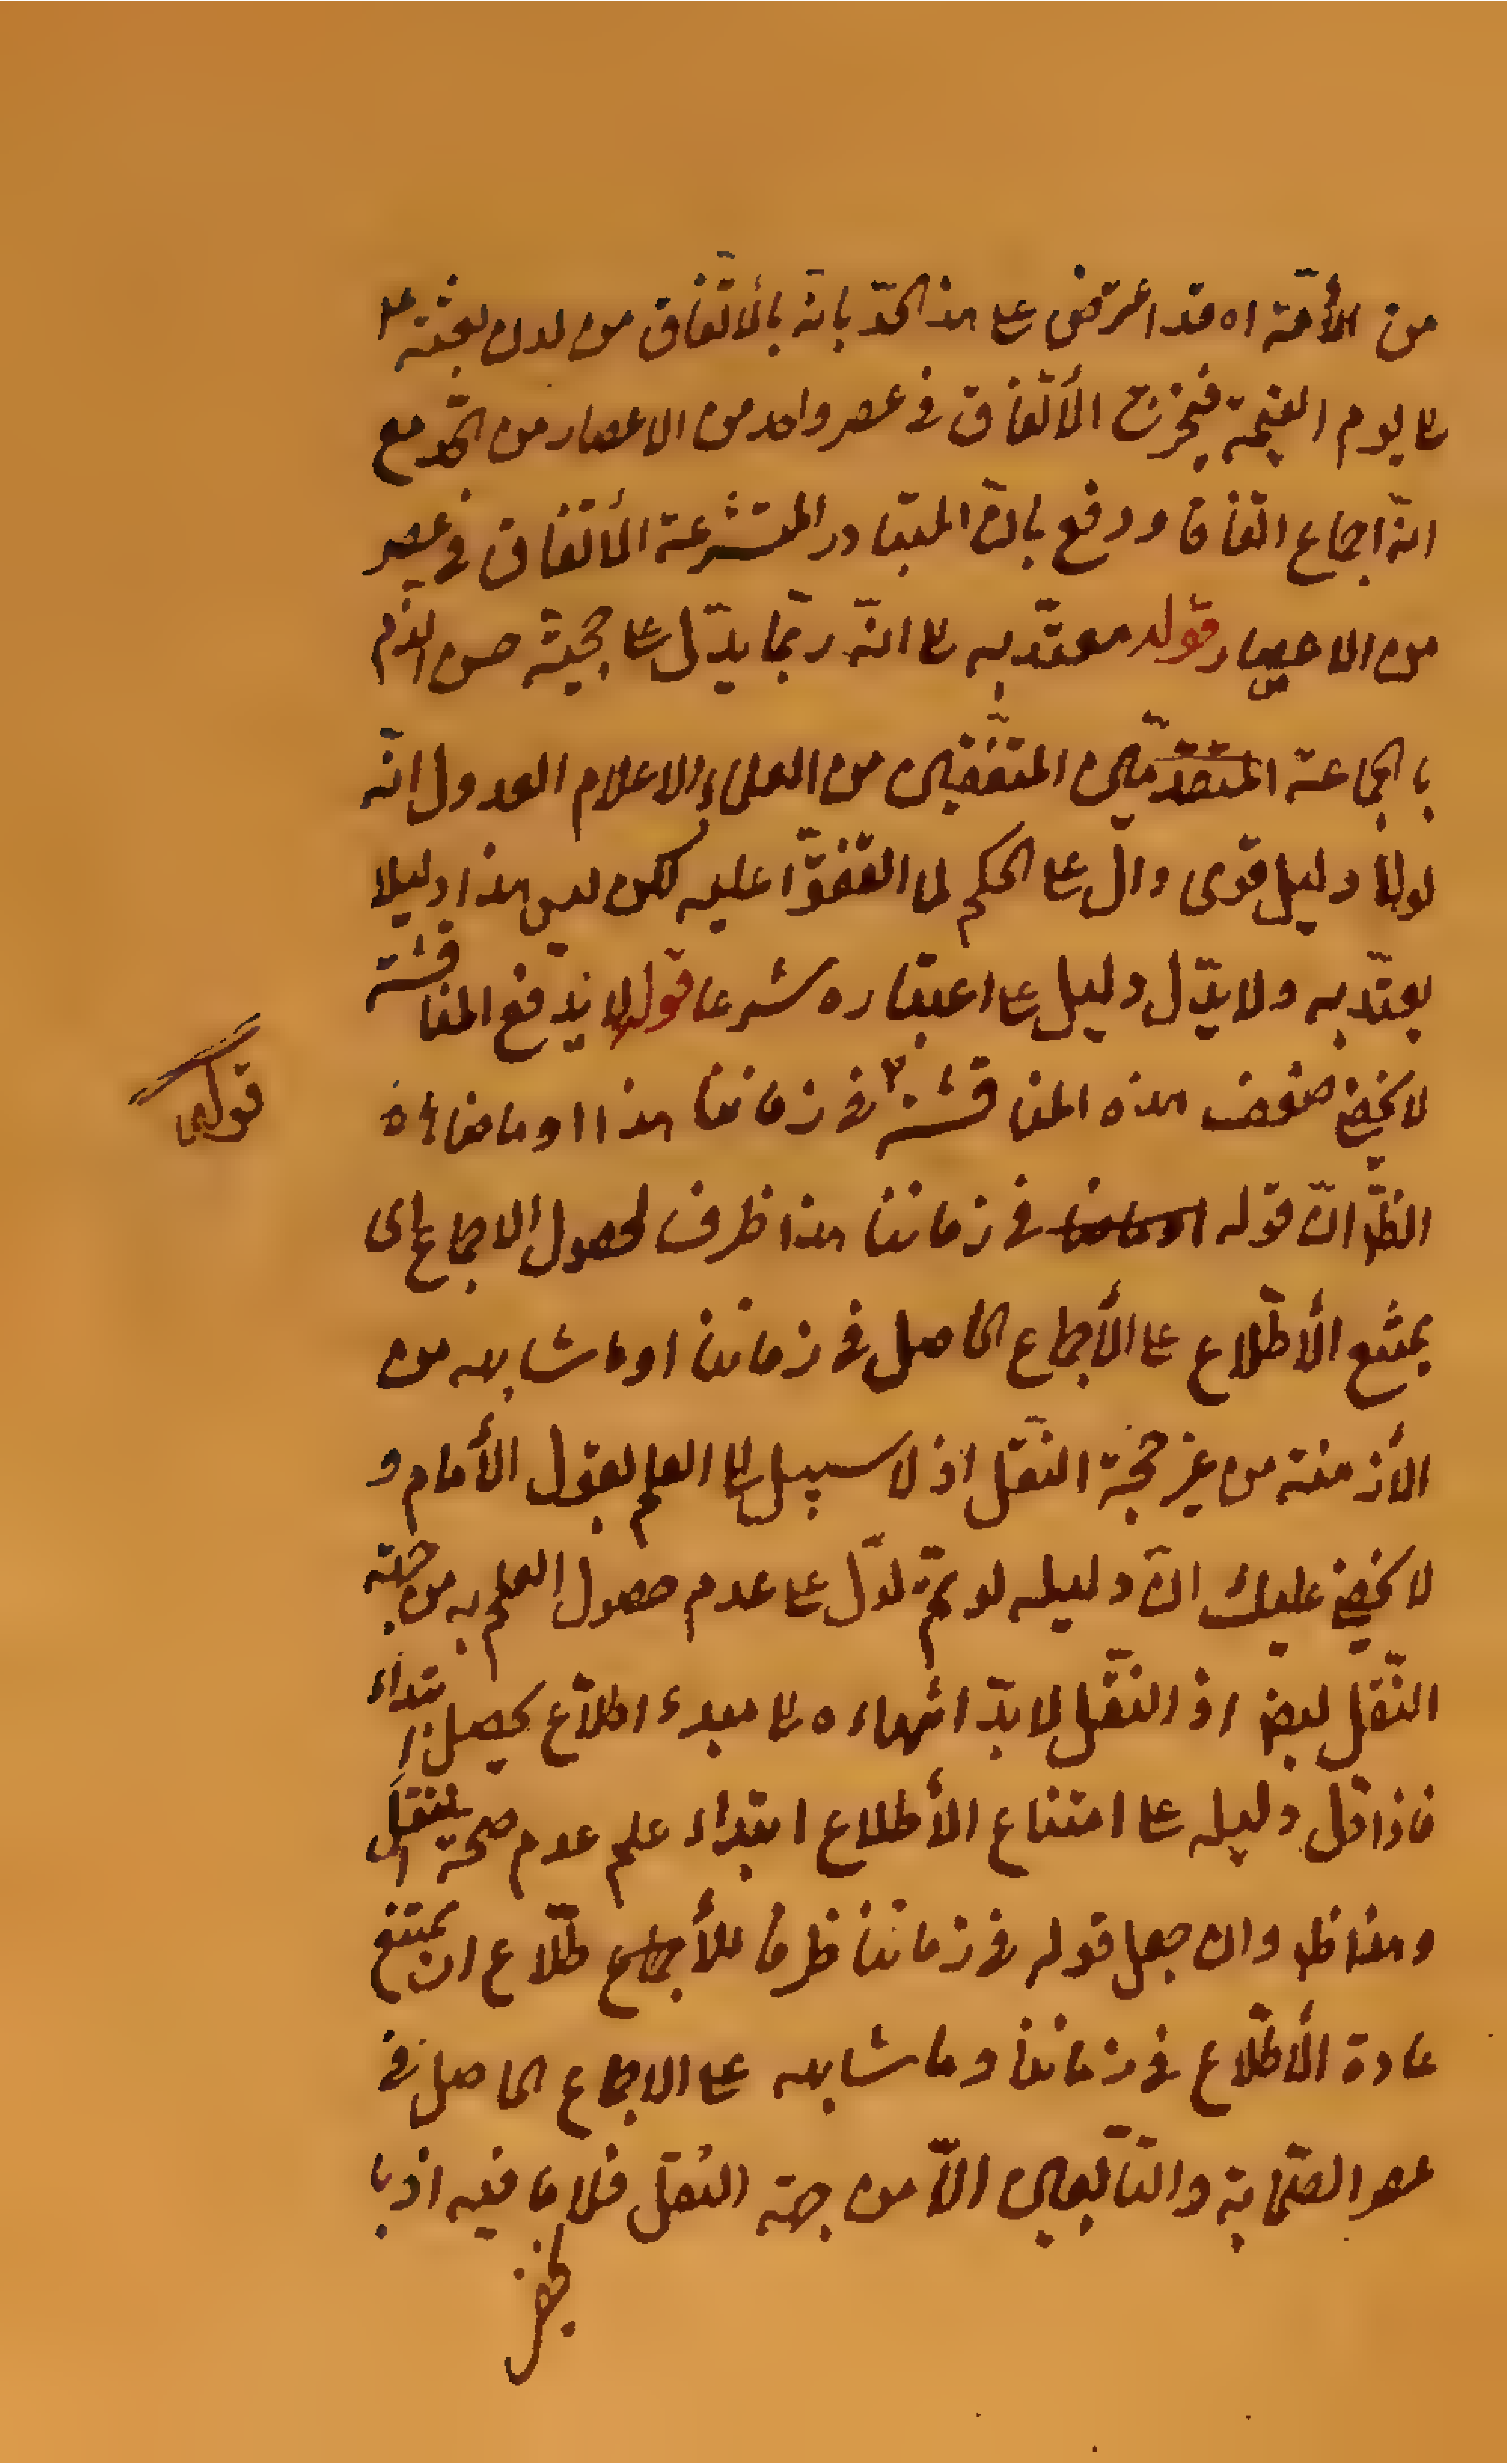 من الأمّة اه قد اعترض عل هذ الحدّ بانّه بالأتّفاق من لدن بعثته ع
لا يوم القيمة فيخرج الأتّفاق فى عصر واحد من الاعصار من الحدّ مع
انّه اجماع اتّفاقا ودفع بانّ المتبادر المتشرعة الأتّفاق فى عصر
من الاعصار قوله معتدّ به لا انّه ربّما يدّل عل حجيّة حسن
بالجماعة المتقدّمين المتّفقين من العلماء الاعلام العدول انّه
لولا دليل قوى دالّ عل الحكم لما اتّفقوّا عليه لكن ليس هذا دليلا
يعتّد به ولا يدّل دليل عل اعتباره شرعا قوله لا يدفع المناقشة
لا يخفى ضعف هذه المناقشة قوله فى زماننا هذا او ما ضاهاه
الظّ انّ قوله فى زماننا هذا ظرف لحصول الاجماع اى
يمتنع الأطّلاع عل الأجماع الحاصل فى زماننا او ما شابهه من
الأزمنة من غير جهة النّقل اذ لا سبيل لا العلم بقول الأمام و
لا يخفى عليك انّ دليله لو تمّ لدّل عل عدم حصول العلم به من جهة
النّقل ايضا اذ النّقل لا بدّ انتهاءه لا مبدء اطّلاع يحصل ابتداء
فاذا دّل دليله عل امتناع الأطلاع ابتداء علم عدم صحة النقل
وهذا ظ وان جعل قوله فى زماننا ظرفا للأطّلاع اى يمتنع
عادة الأطّلاع فى زماننا وما شابهه عل الاجماع الحاصل فى
عصر الصّحابة والتّابعين الّا من جهة النّقل فلا ما فيه اذ با